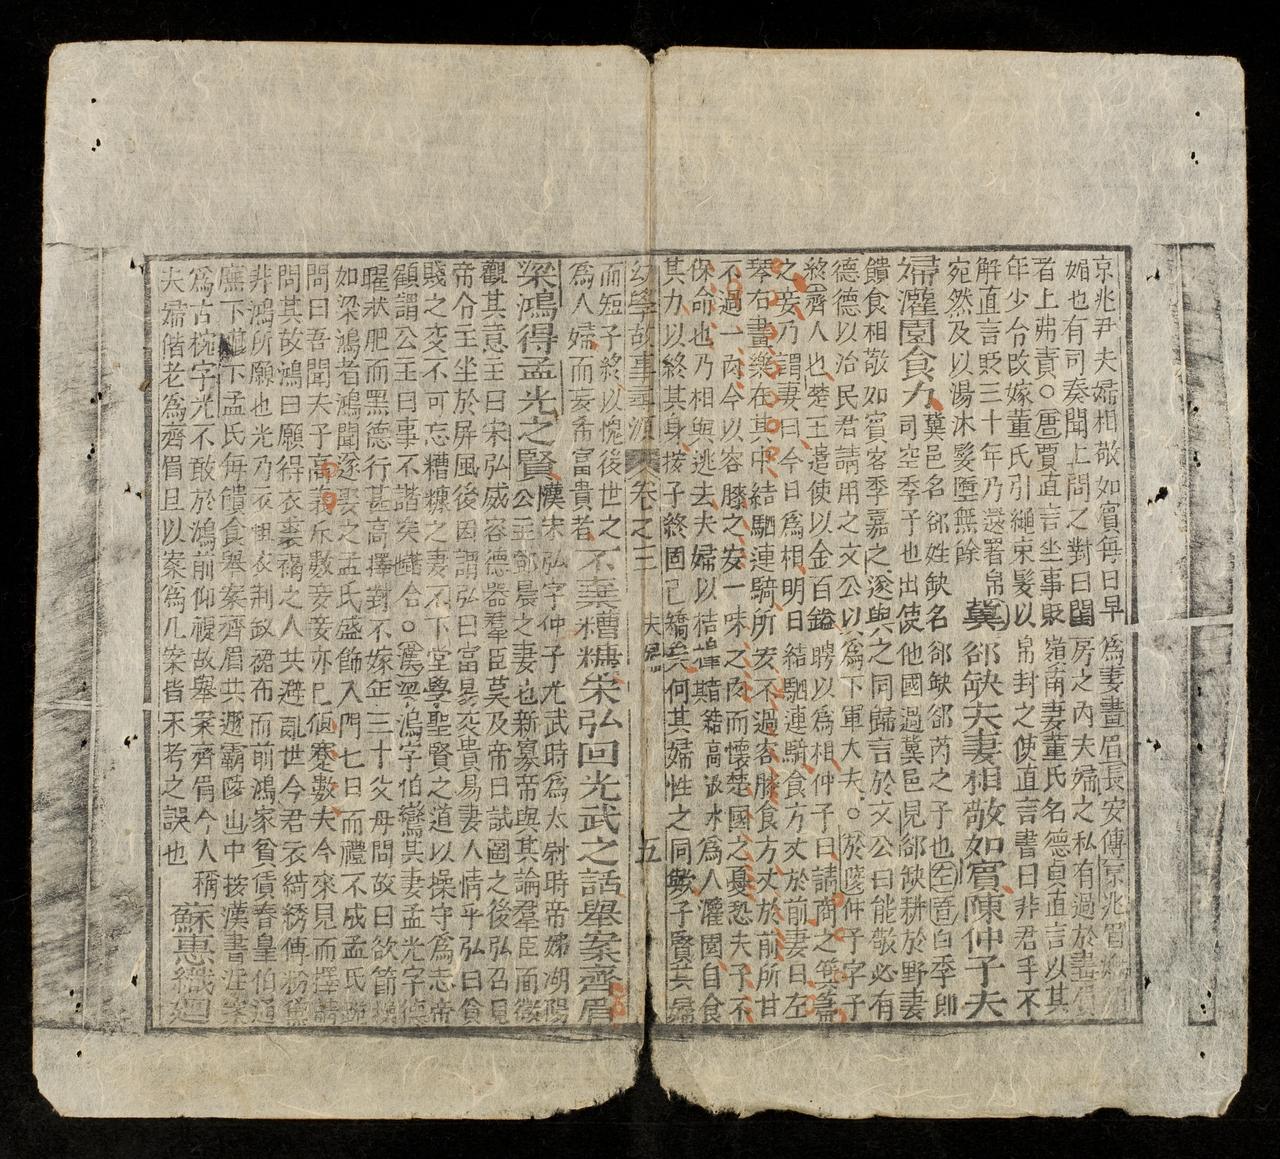 京兆尹夫婦相敬如賓每日早爲妻畫眉長安傳京兆眉嫵
媚也有司奏聞上問之對曰閨房之內夫婦之私有過於畫眉
者上弗責○唐賈直言坐事貶嶺南妻董氏名德貞直言以其
年少台改嫁董氏引繩束髮以帛封之使直言書曰非君手不
解直言貶三十年乃還署帛
宛然及以湯沐髮墮無餘
冀郤缺夫妻相敬如賓陳仲子夫
婦灌園食力
冀邑名郤姓缺名郤缺郤芮之子也左晉臼季即
司空季子也出使他國過冀邑見郤缺耕於野妻
饋食相敬如賓客季嘉之遂與之同歸言於文公曰能敬必有
德德以治民君請用之文公以爲下軍大夫○於陵仲子字子
終齊人也楚王遣使以金百鎰聘以爲相仲子曰請商之箕箒
之妾乃謂妻曰今日爲相明日結駟連騎食方丈於前妻曰左
琴右畫樂在其中結駟連騎所安不過容膝食方丈於前所甘
不過一肉今以容膝之安一味之肉而懷楚國之憂恐夫子不
保命也乃相與逃去夫婦以桔槔爲人灌園自食
其力以終其身按子終固已矯矣何其婦性之同歟子賢其婦
幼學故事尋源 卷之三 夫婦 五
而短子終以愧後世之
爲人婦而妄希富貴者
不棄糟糠宋弘回光武之語舉案齊眉
梁鴻得孟光之賢
漢宋弘字仲子光武時爲太尉時帝姊湖陽
公主鄧晨之妻也新寡帝與其論羣臣面微
觀其意主曰宋弘威容德器羣臣莫及帝曰試圖之後弘召見
帝令主坐於屏風後因謂弘曰富易交貴易妻人情乎弘曰貧
賤之交不可忘糟糠之妻不下堂學聖賢之道以操守爲志帝
顧謂公主曰事不諧矣諧合○漢梁鴻字伯鸞其妻孟光字德
曜狀肥而黑德行甚高擇對不嫁年三十父母問故曰欲節操
如梁鴻者鴻聞遂娶之孟氏盛飾入門七日而禮不成孟氏跪
問曰吾聞夫子高義斥數妾妾亦已偃蹇數夫今來見而擇請
問其故鴻曰願得衣裘褐之人共避亂世今君衣綺綉傅粉黛
非鴻所願也光乃衣粗衣荊釵裙布而前鴻家貧賃舂皇伯通
廡下孟氏每饋食舉案齊眉共遯霸陵山中按漢書注案
爲古椀字光不敢於鴻前仰視故舉案齊眉今人稱
夫婦偕老爲齊眉且以案爲几案皆未考之誤也
蘇惠織廻